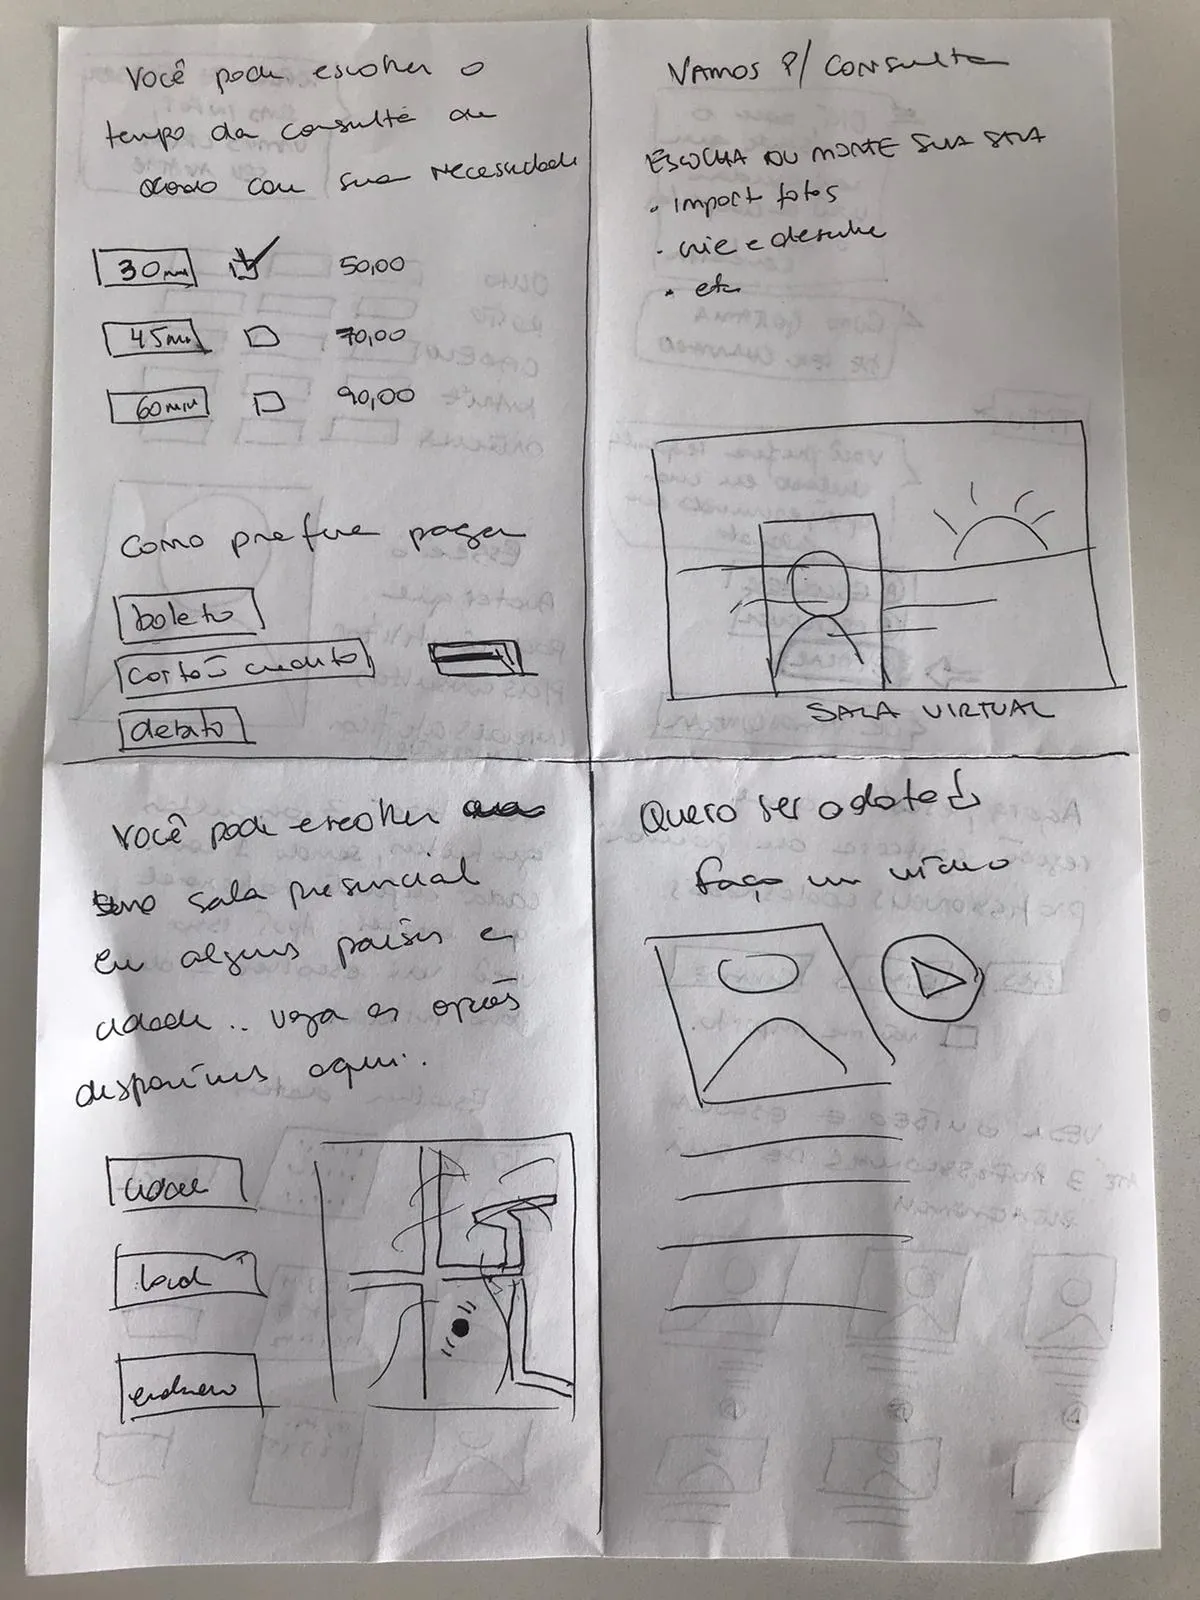 Você pode escolher o
tempo da consulta de
acordo com sua necessidade
30min 50,00
45min 70,00
60min 90,00
Como prefere pagar
boleto
cartão credito
debito
VAMOS P/ CONSULTA
ESCOLHA OU MONTE SUA SALA
. import fotos
. crie e desenhe
. etc
SALA VIRTUAL
Você pode escolher
uma sala presencial
em alguns paises e
cidade.. veja as opções
disponíveis aqui.
cidade
local
endereço
Quero ser adotado
faço um vídeo